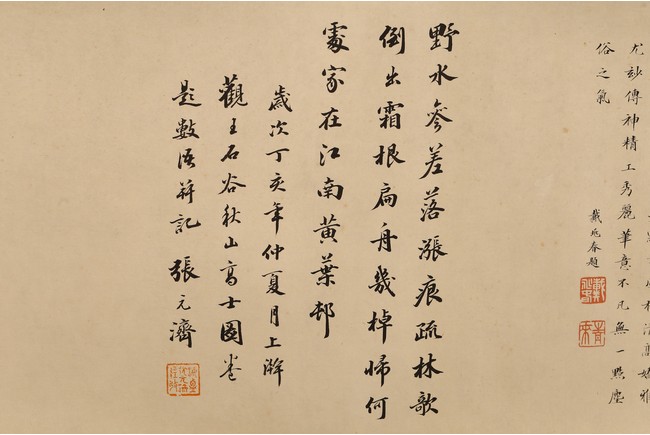 尤妙傳神精工秀麗華意不凡無一點塵
俗之氣
戴兆春題
野水參差落漲痕疏林欹
倒出霜根扁舟幾棹歸何
處家在江南黃葉邨
歲次丁亥年仲夏月上澣
觀王石谷秋山高士圖卷
題數語并記 張元濟